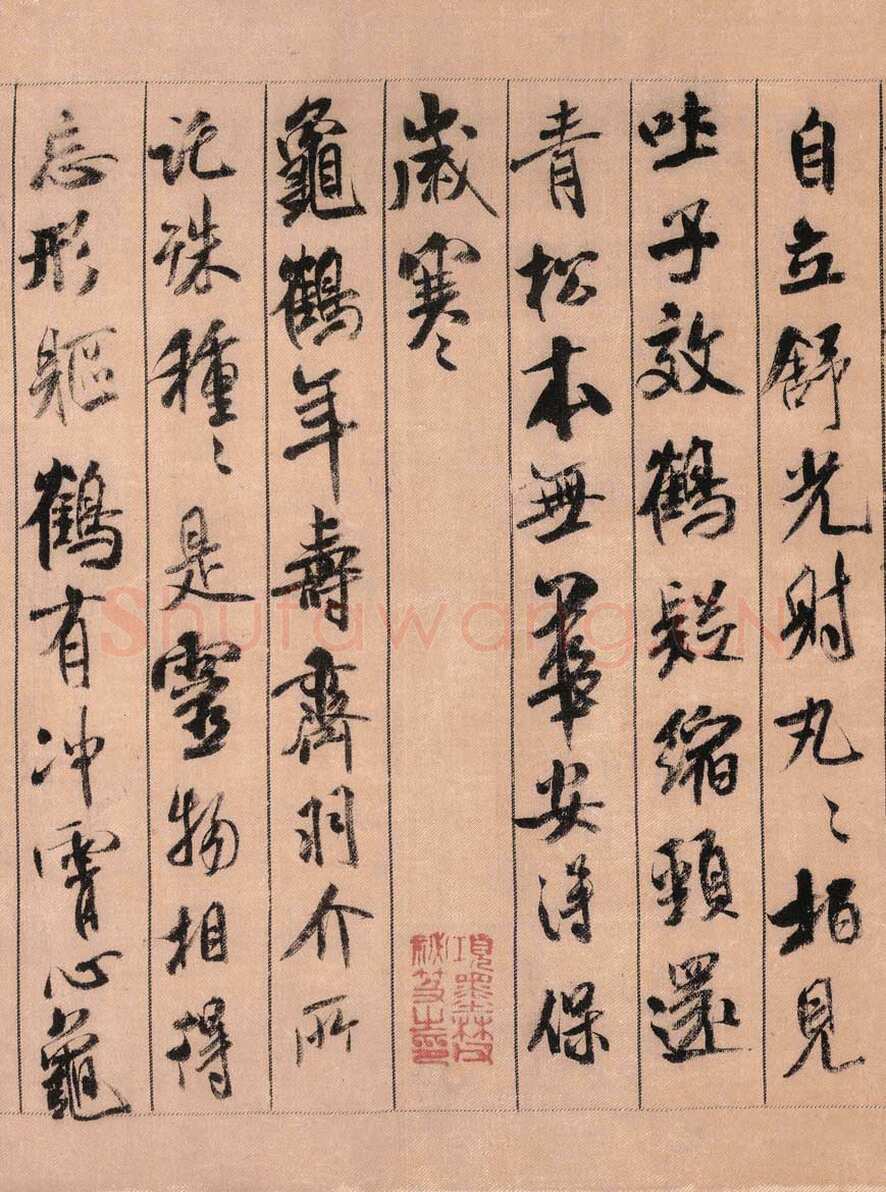 自立舒光射丸〻柏見
吐子效鶴疑縮頸還
青松本無華安得保
歲寒〻
龜鶴年壽齊羽介所
託殊種〻是靈物相得
忘形軀鶴有冲霄心龜
項墨林父
秘笈之印
Shufawang.CN